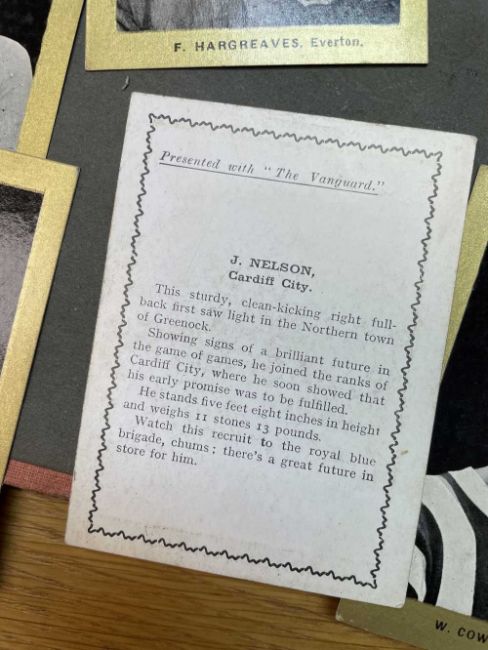 F. HARGREAVES. Everton.
Presented with "The Vanguard."
J. NELSON,
Cardiff City.
This sturdy, clean-kicking right full-
back first saw light in the Northern town
of Greenock.
Showing signs of a brilliant future in
the game of games, he joined the ranks of
Cardiff City, where he soon showed that
his early promise was to be fulfilled.
He stands five feet eight inches in height
and weighs 11 stones 13 pounds.
Watch this recruit to the royal blue
brigade, chums; there's a great future in
store for him.
W. COW